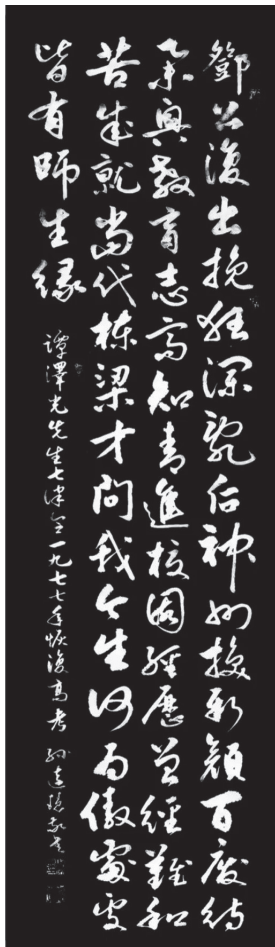 鄧公復出挽狂瀾亂后神州換新顏百廢待
舉興教育志高知青進校園經歷曾經難和
苦成就當代棟梁才問我今生何为傲處處
皆有師生緣
譚澤光先生七律一九七七年恢復高考 孫達